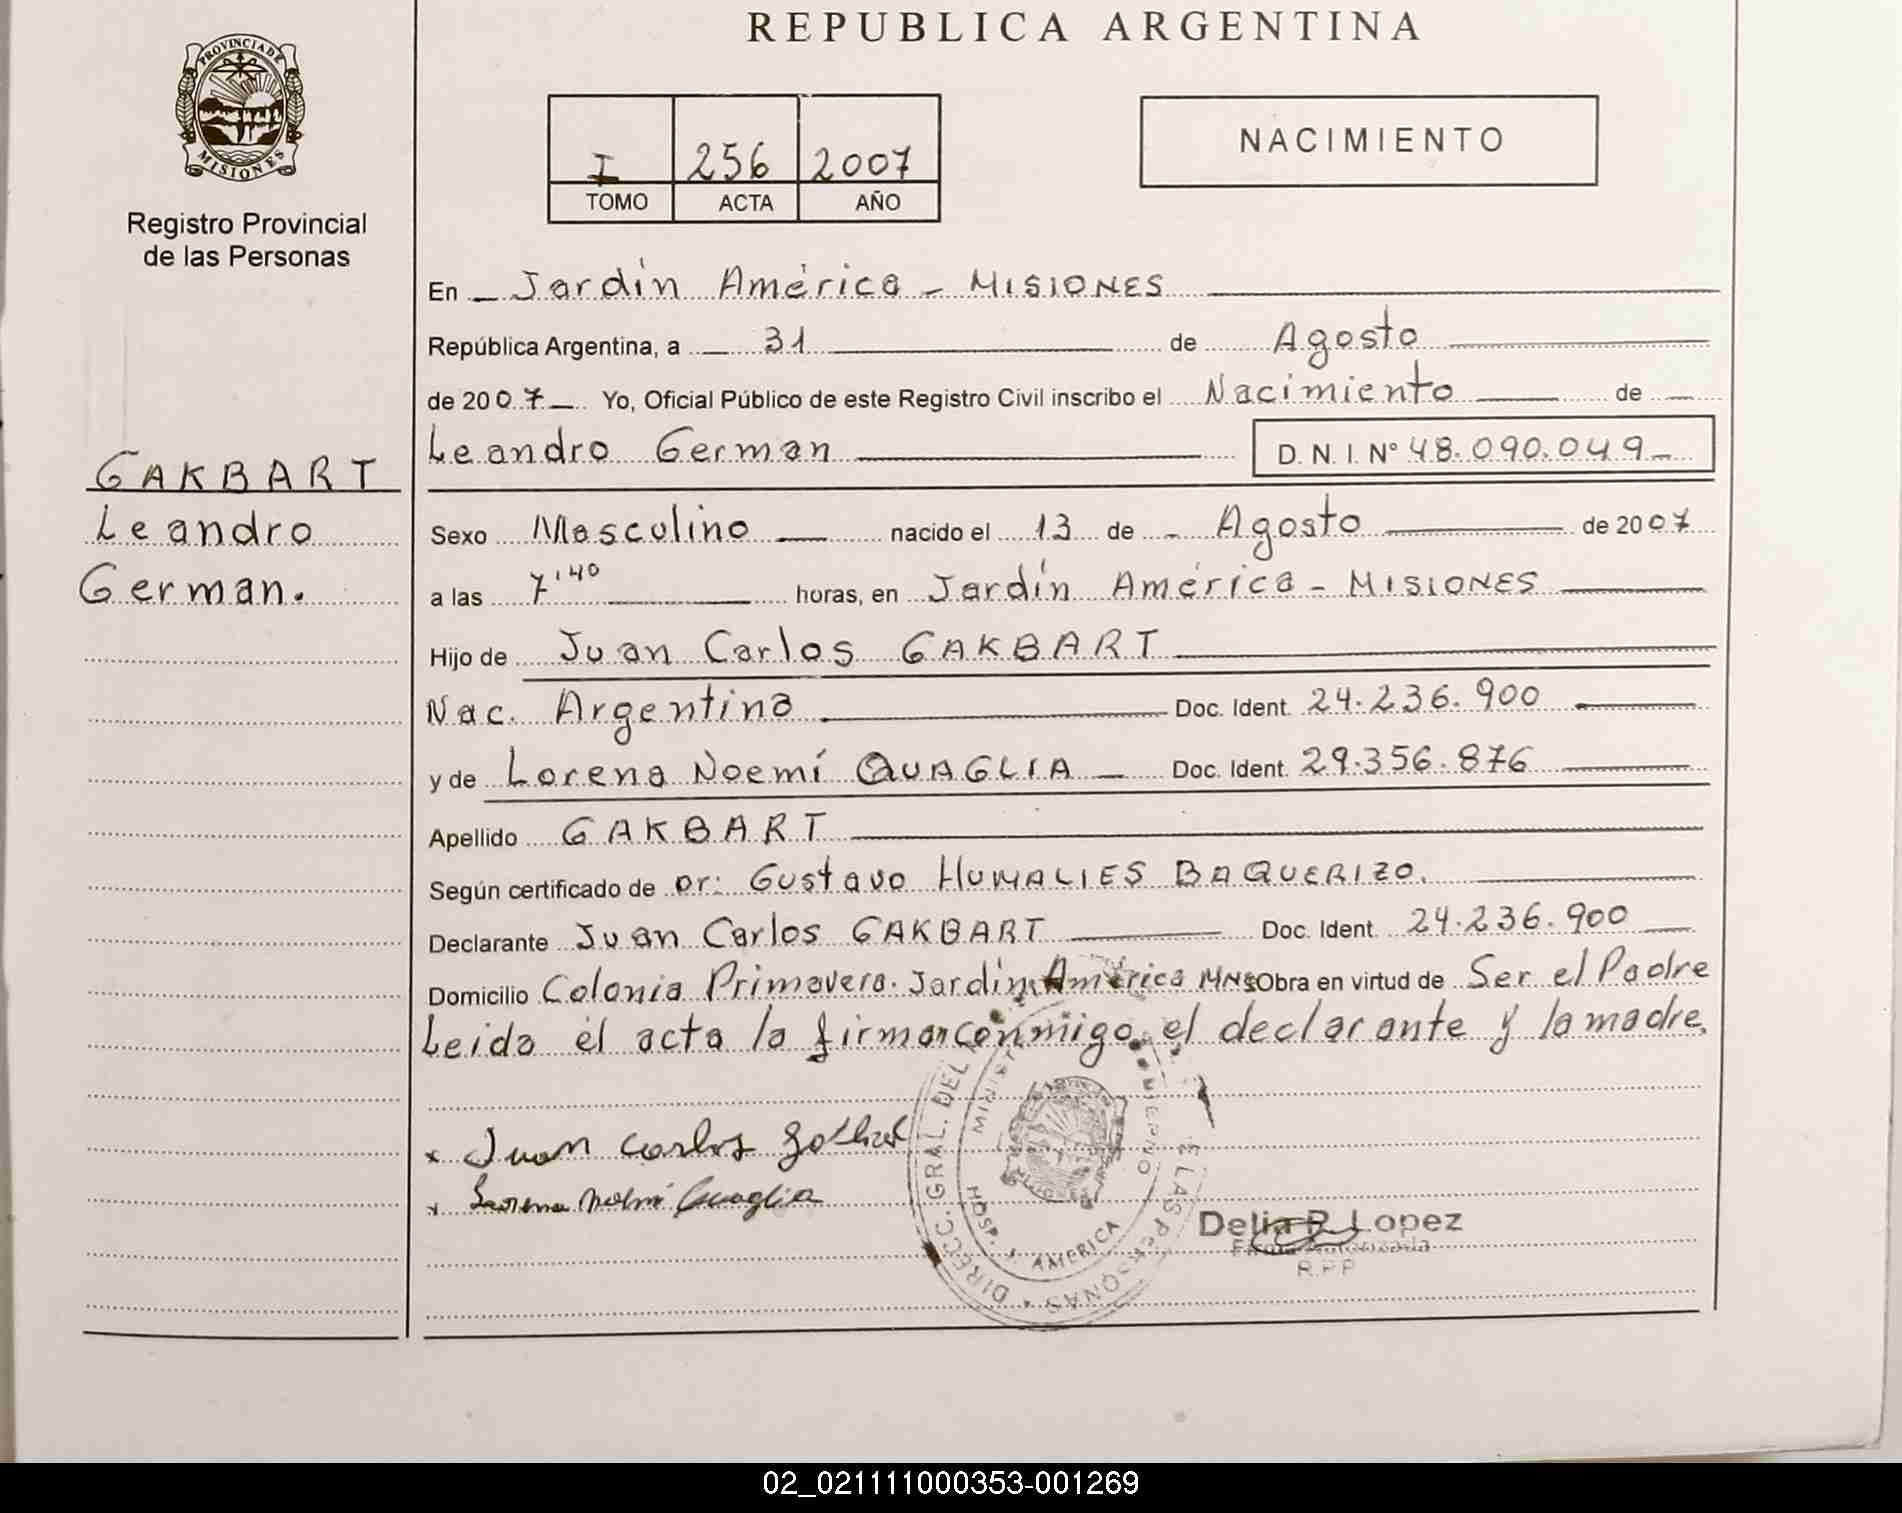 REPUBLICA ARGENTINA
PROVINCIA DE
MISIONES
Registro Provincial
de las Personas
I 256 2007
TOMO ACTA AÑO
NACIMIENTO
En Jardín América - MISIONES
República Argentina, a 31 de Agosto
de 2007 Yo, Oficial Público de este Registro Civil inscribo el Nacimiento de
Leandro German D.N.I. Nº 48.090.049
GAKBART
Leandro
German.
Sexo Masculino nacido el 13 de Agosto de 2007
a las 7'40 horas, en Jardín América - MISIONES
Hijo de Juan Carlos GAKBART
Nac. Argentina Doc. Ident. 24.236.900
y de Lorena Noemí QUAGLIA Doc. Ident. 29.356.876
Apellido GAKBART
Según certificado de Dr: Gustavo HUMALIES BAQUERIZO.
Declarante Juan Carlos GAKBART Doc. Ident. 24.236.900
Domicilio Colonia Primavera. Jardín América MNS Obra en virtud de Ser el Padre
Leida el acta la firman conmigo el declarante y la madre.
Juan Carlos
Lorena Noemi Quaglia
DIRECC. GRAL. DEL
E LAS PERSONAS
HOSP. J. AMERICA
Delia R. Lopez
Firma Autorizada
R.P.P
02_021111000353-001269